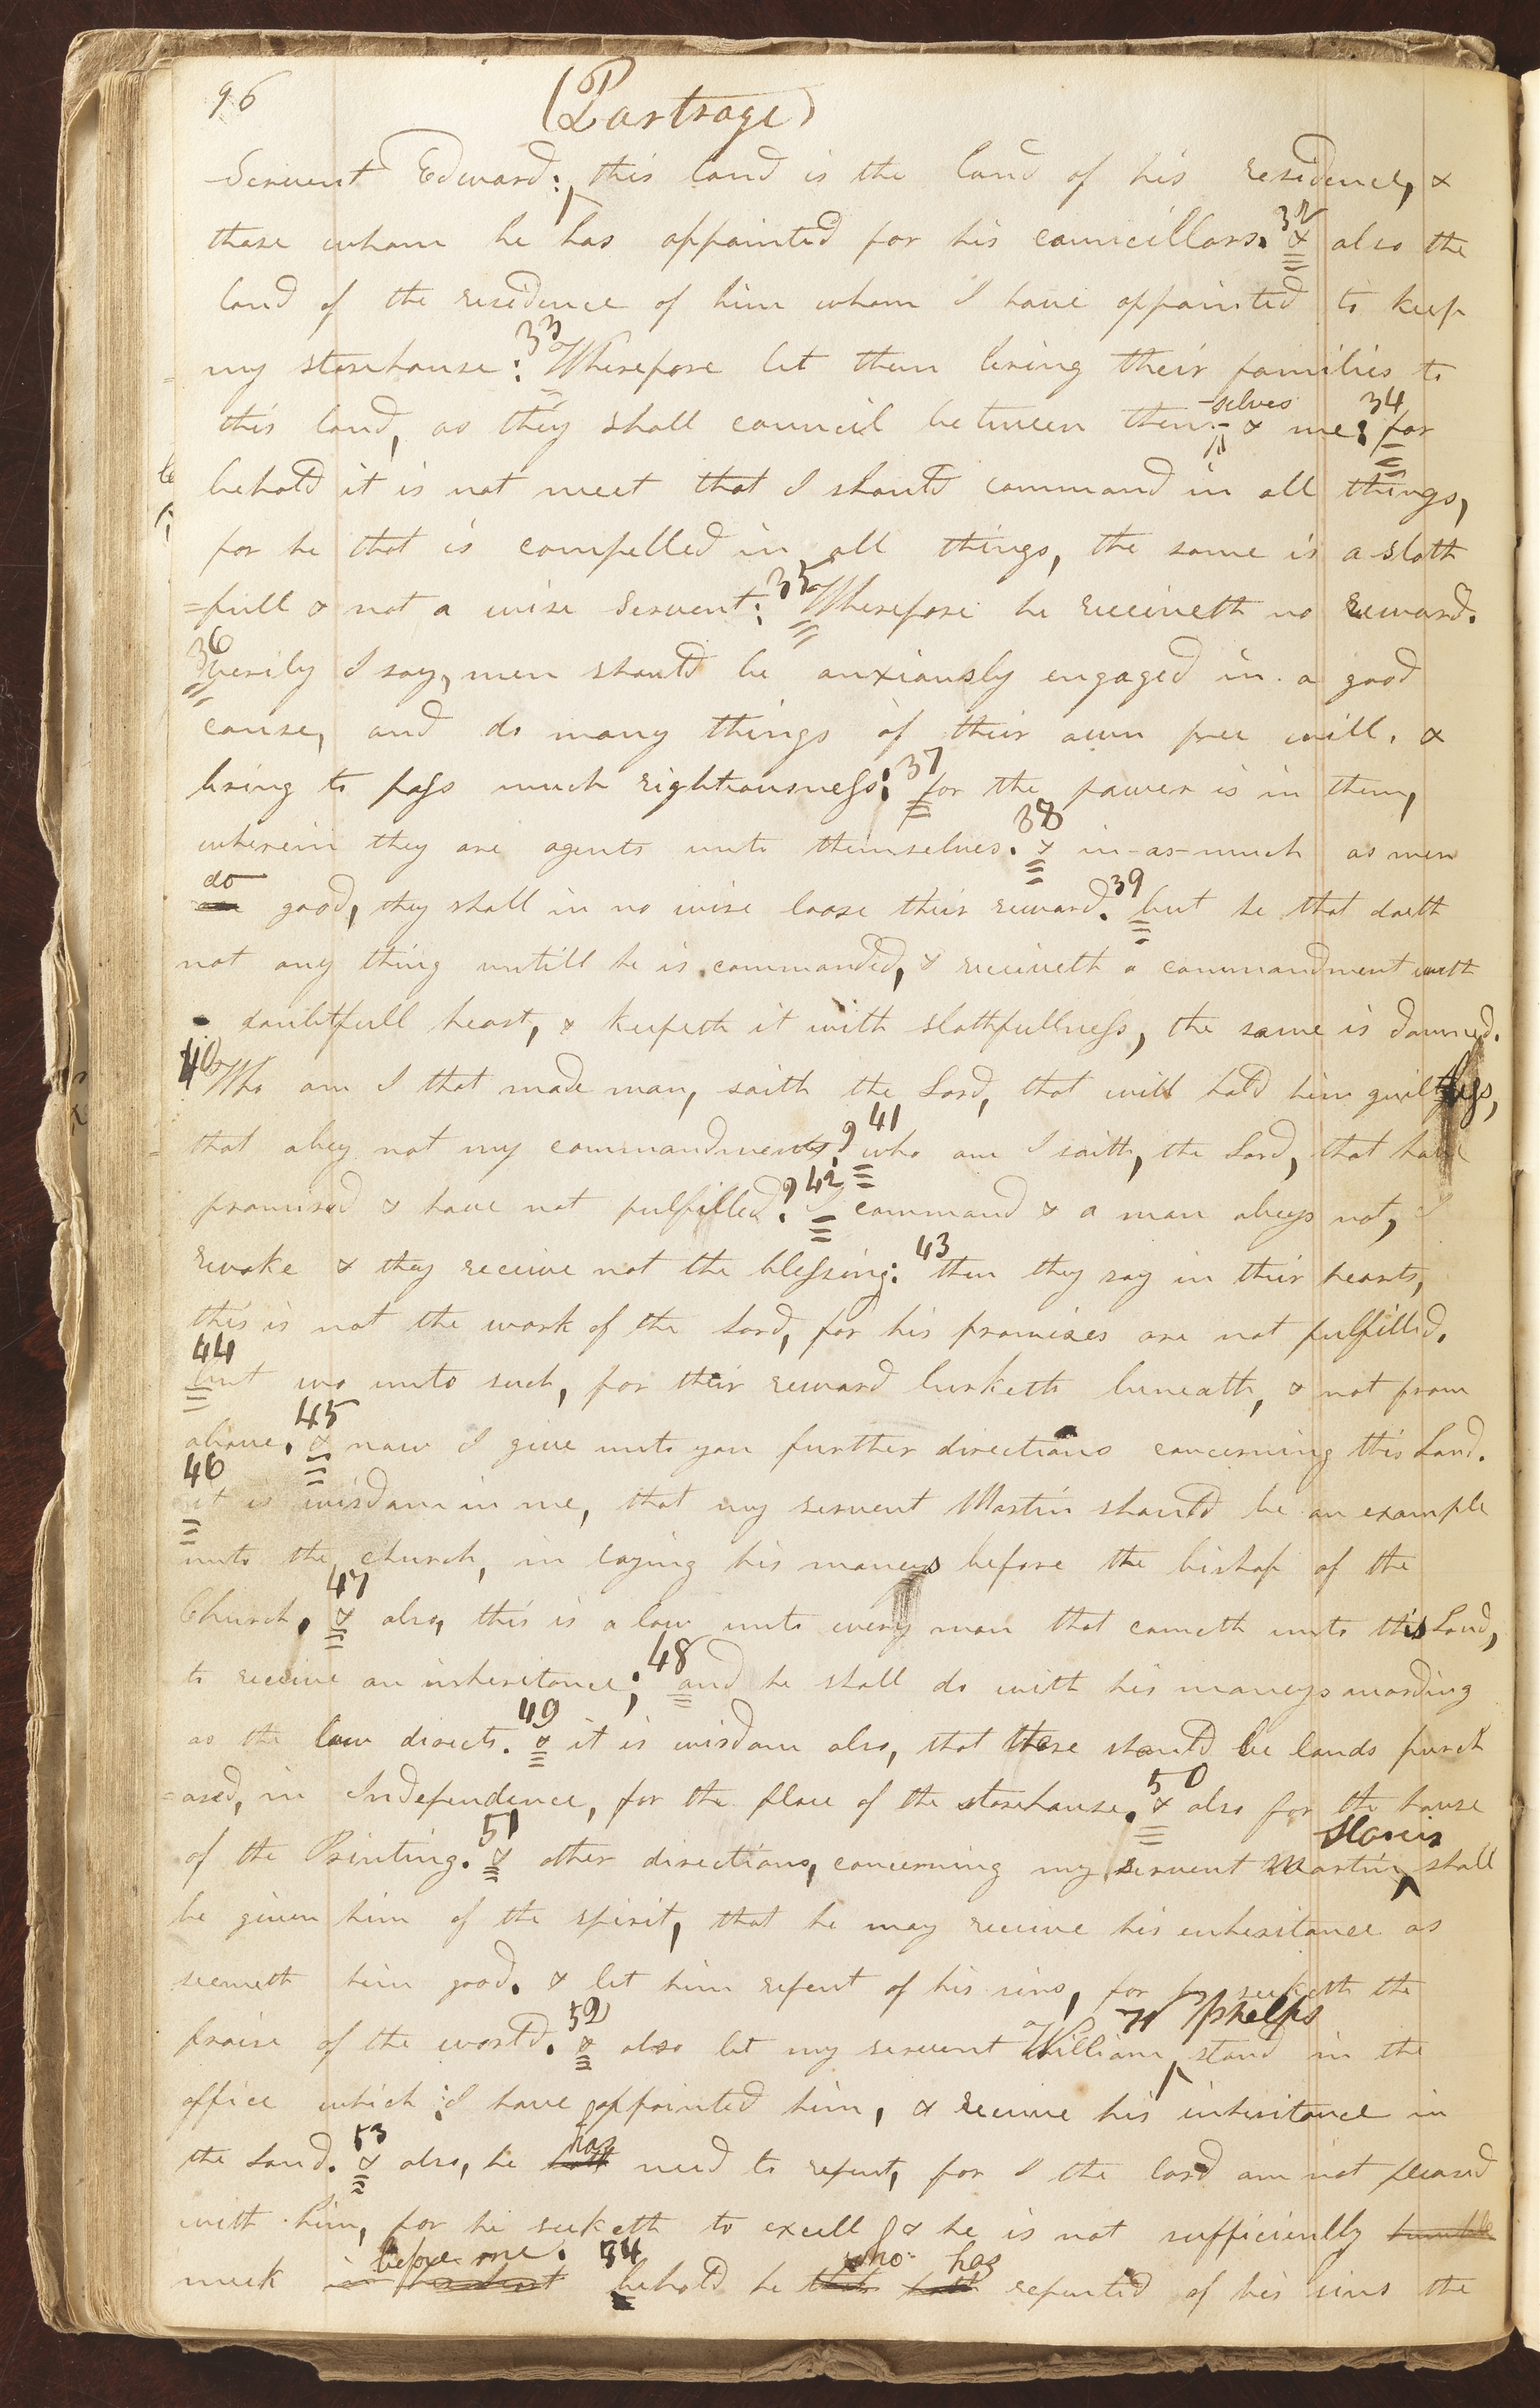 96
(Partrage)
Servent Edward: this land is the land of his residence, &
those whom he has appointed for his councillors. 32 & also the
land of the residence of him whom I have appointed to keep
my storehouse: 33 Wherefore let them bring their families to
this land, as they shall council between them- -selves & me: 34 for
behold it is not meet that I should command in all things,
for he that is compelled in all things, the same is a sloth
=full & not a wise Servent: 35 Wherefore he receiveth no reward.
36 verily I say, men should be anxiously engaged in a good
cause, and do many things of their own free will, &
bring to pass much rightiousness: 37 for the power is in them,
wherein they are agents unto themselves. 38 & in-as-much as men
do good, they shall in no wise loose their reward. 39 but he that doeth
not any thing untill he is commanded, & receiveth a commandment with
doubtfull heart, & keepeth it with slothfullness, the same is damned.
40 Who am I that made man, saith the Lord, that will hold him guiltless,
that obey not my commandments? 41 who am I saith, the Lord, that have
promised & have not fulfilled? 42 I command & a man obeys not, I
revoke & they receive not the blessing: 43 then they say in their hearts,
this is not the work of the Lord, for his promises are not fulfilled.
44 but wo unto such, for their reward lurketh beneath, & not from
above. 45 & now I give unto you further directions concerning this Land.
46 it is wisdom in me, that my servent Martin should be an example
unto the church, in laying his moneys before the bishop of the
Church. 47 & also, this is a law unto every man that cometh unto this Land,
to receive an inheritance; 48 and he shall do with his moneys according
as the law directs. 49 & it is wisdom also, that there should be lands purch
=ased, in Independence, for the place of the storehouse. 50 & also for the house
of the Printing. 51 & other directions, concerning my servent Martin Harris shall
be given him of the spirit, that he may receive his inheritance as
seemeth him good. & let him repent of his sins, for he seeketh the
praise of the world. 52 & also let my servent William W Phelps stand in the
office which I have appointed him, & receive his inheritance in
the Land. 53 & also, he hath has need to repent, for I the lord am not pleased
with him, for he seeketh to excell & he is not sufficiently humble
meek before me. 54 behold he that who hath has repented of his sins the